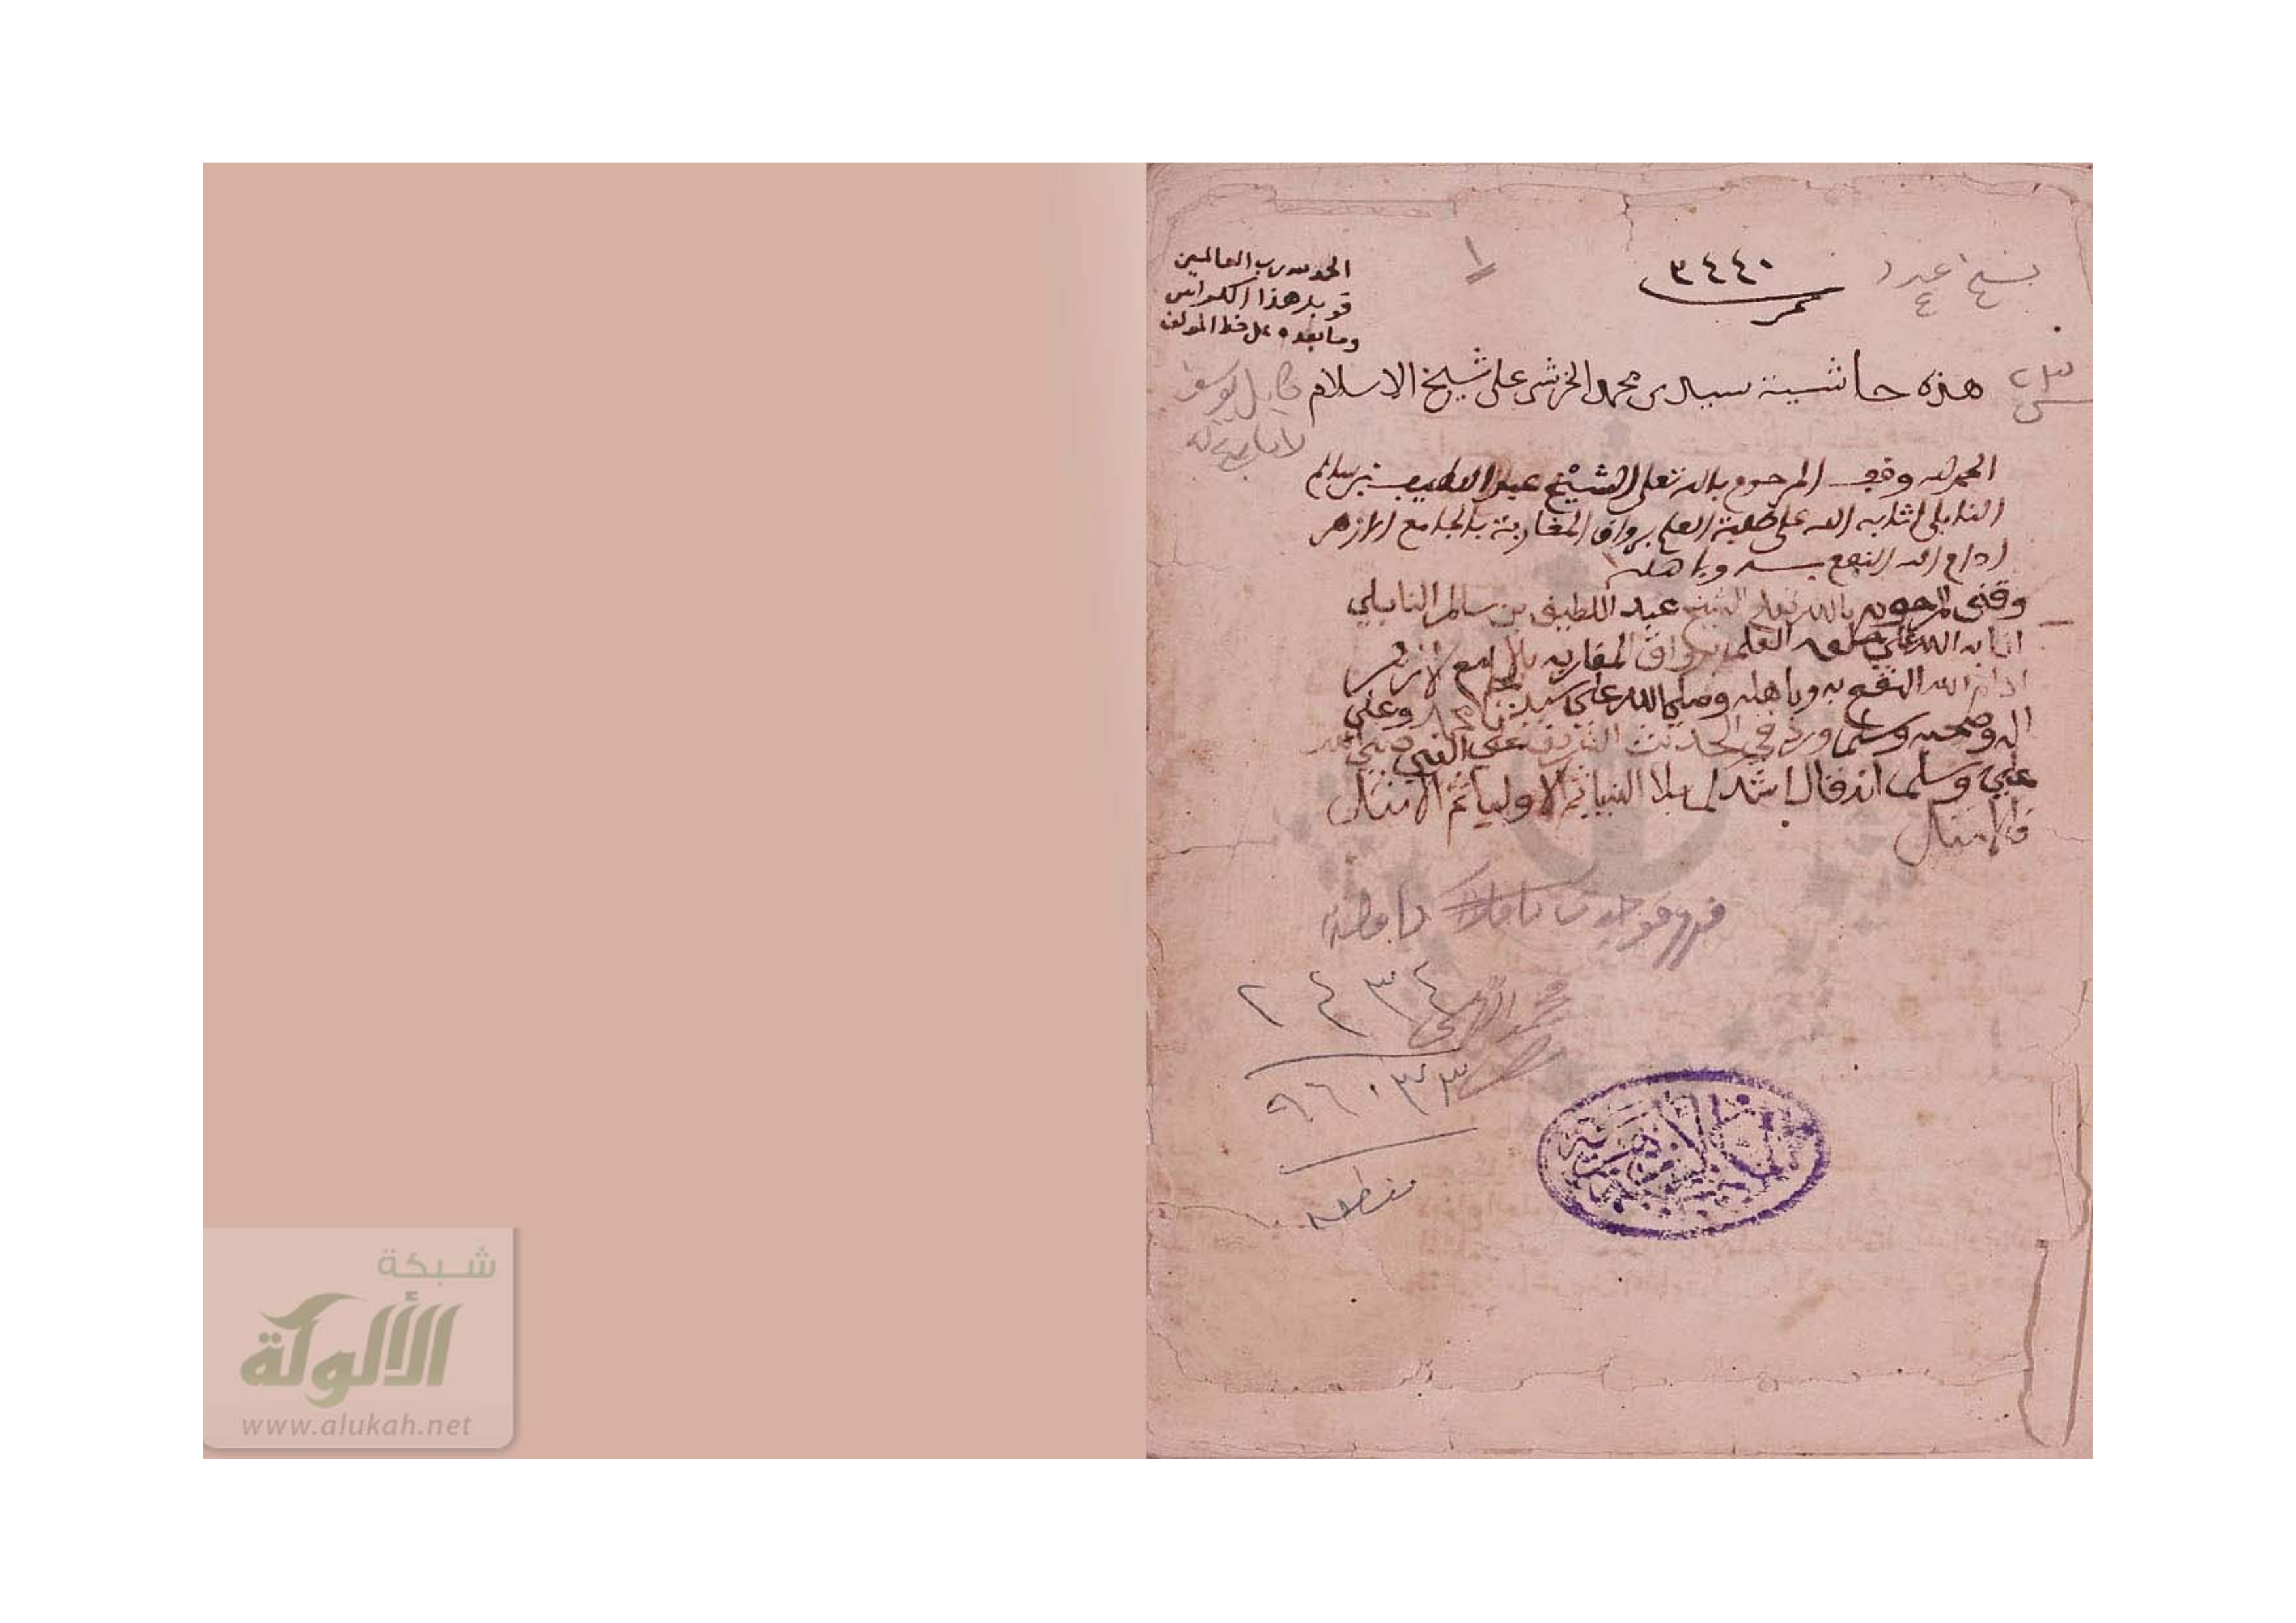 ٣٤٤٠
نمر
١
الحمد لله رب العالمين
قوبل هذا الكراس
وما بعده على خط المولف
هذه حاشية سيدى محمد الخرشى على شيخ الاسلام
الحمد لله وقف المرحوم بالله تعلى الشيخ عبد اللطيف بن سالم
النابلي اثابه الله على طلبة العلم برواق المغاربة بالجامع الازهر
ادام الله النفع به وباهله
وقف المرحوم بالله تعلى الشيخ عبد اللطيف بن سالم النابلي
اثابه الله على طلبه العلم برواق المغاربه بالجامع الازهر
ادام الله النفع به وباهله وصلى الله على سيدنا محمد وعلى
اله وصحبه وسلم ورد في الحديث الشريف عن النبي صلى الله
عليه وسلم انه قال اشدكم بلا النبيا ثم الاوليا ثم الامثل
فالامثل
٢٤٣٤
٩٦٠٣٣
شبكة
الألوكة
www.alukah.net